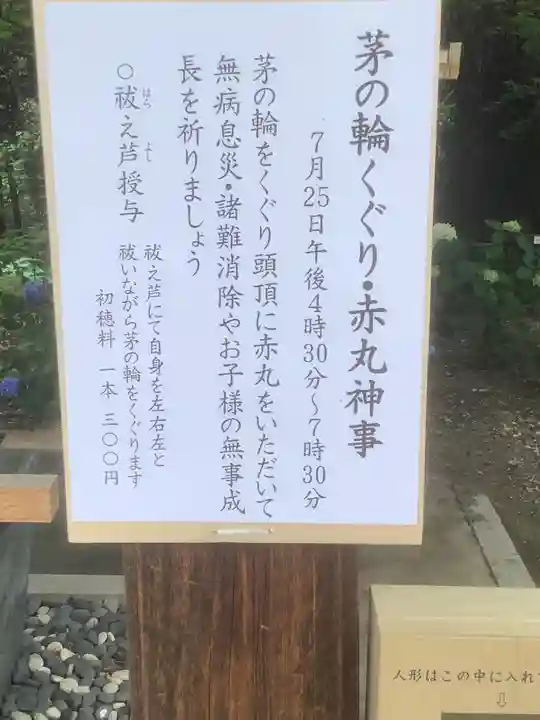 茅の輪くぐり・赤丸神事
7月25日午後4時30分〜7時30分
茅の輪をくぐり頭頂に赤丸をいただいて
無病息災・諸難消除やお子様の無事成
長を祈りましょう
○祓え芦授与
はら
よし
祓え芦にて自身を左右左と
祓いながら茅の輪をくぐります
初穂料 一本 三〇〇円
人形はこの中に入れ
⇩